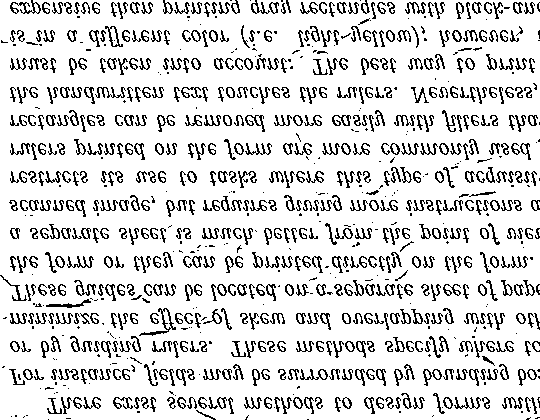 There exist several methods to design forms with
For instance, fields may be surrounded by bounding bo
or by guiding rulers. These methods specify where to
minimize the effect of skew and overlapping with oth
These guides can be located on a separate sheet of pape
the form or they can be printed directly on the form.
a separate sheet is much better from the point of view
scanned image, but requires giving more instructions a
restricts its use to tasks where this type of acquisit
rulers printed on the form are more commonly used
rectangles can be removed more easily with filters tha
the handwritten text touches the rulers. Nevertheless,
must be taken into account: The best way to print
is in a different color (i.e. light yellow); however,
expensive than printing gray rectangles with black-and